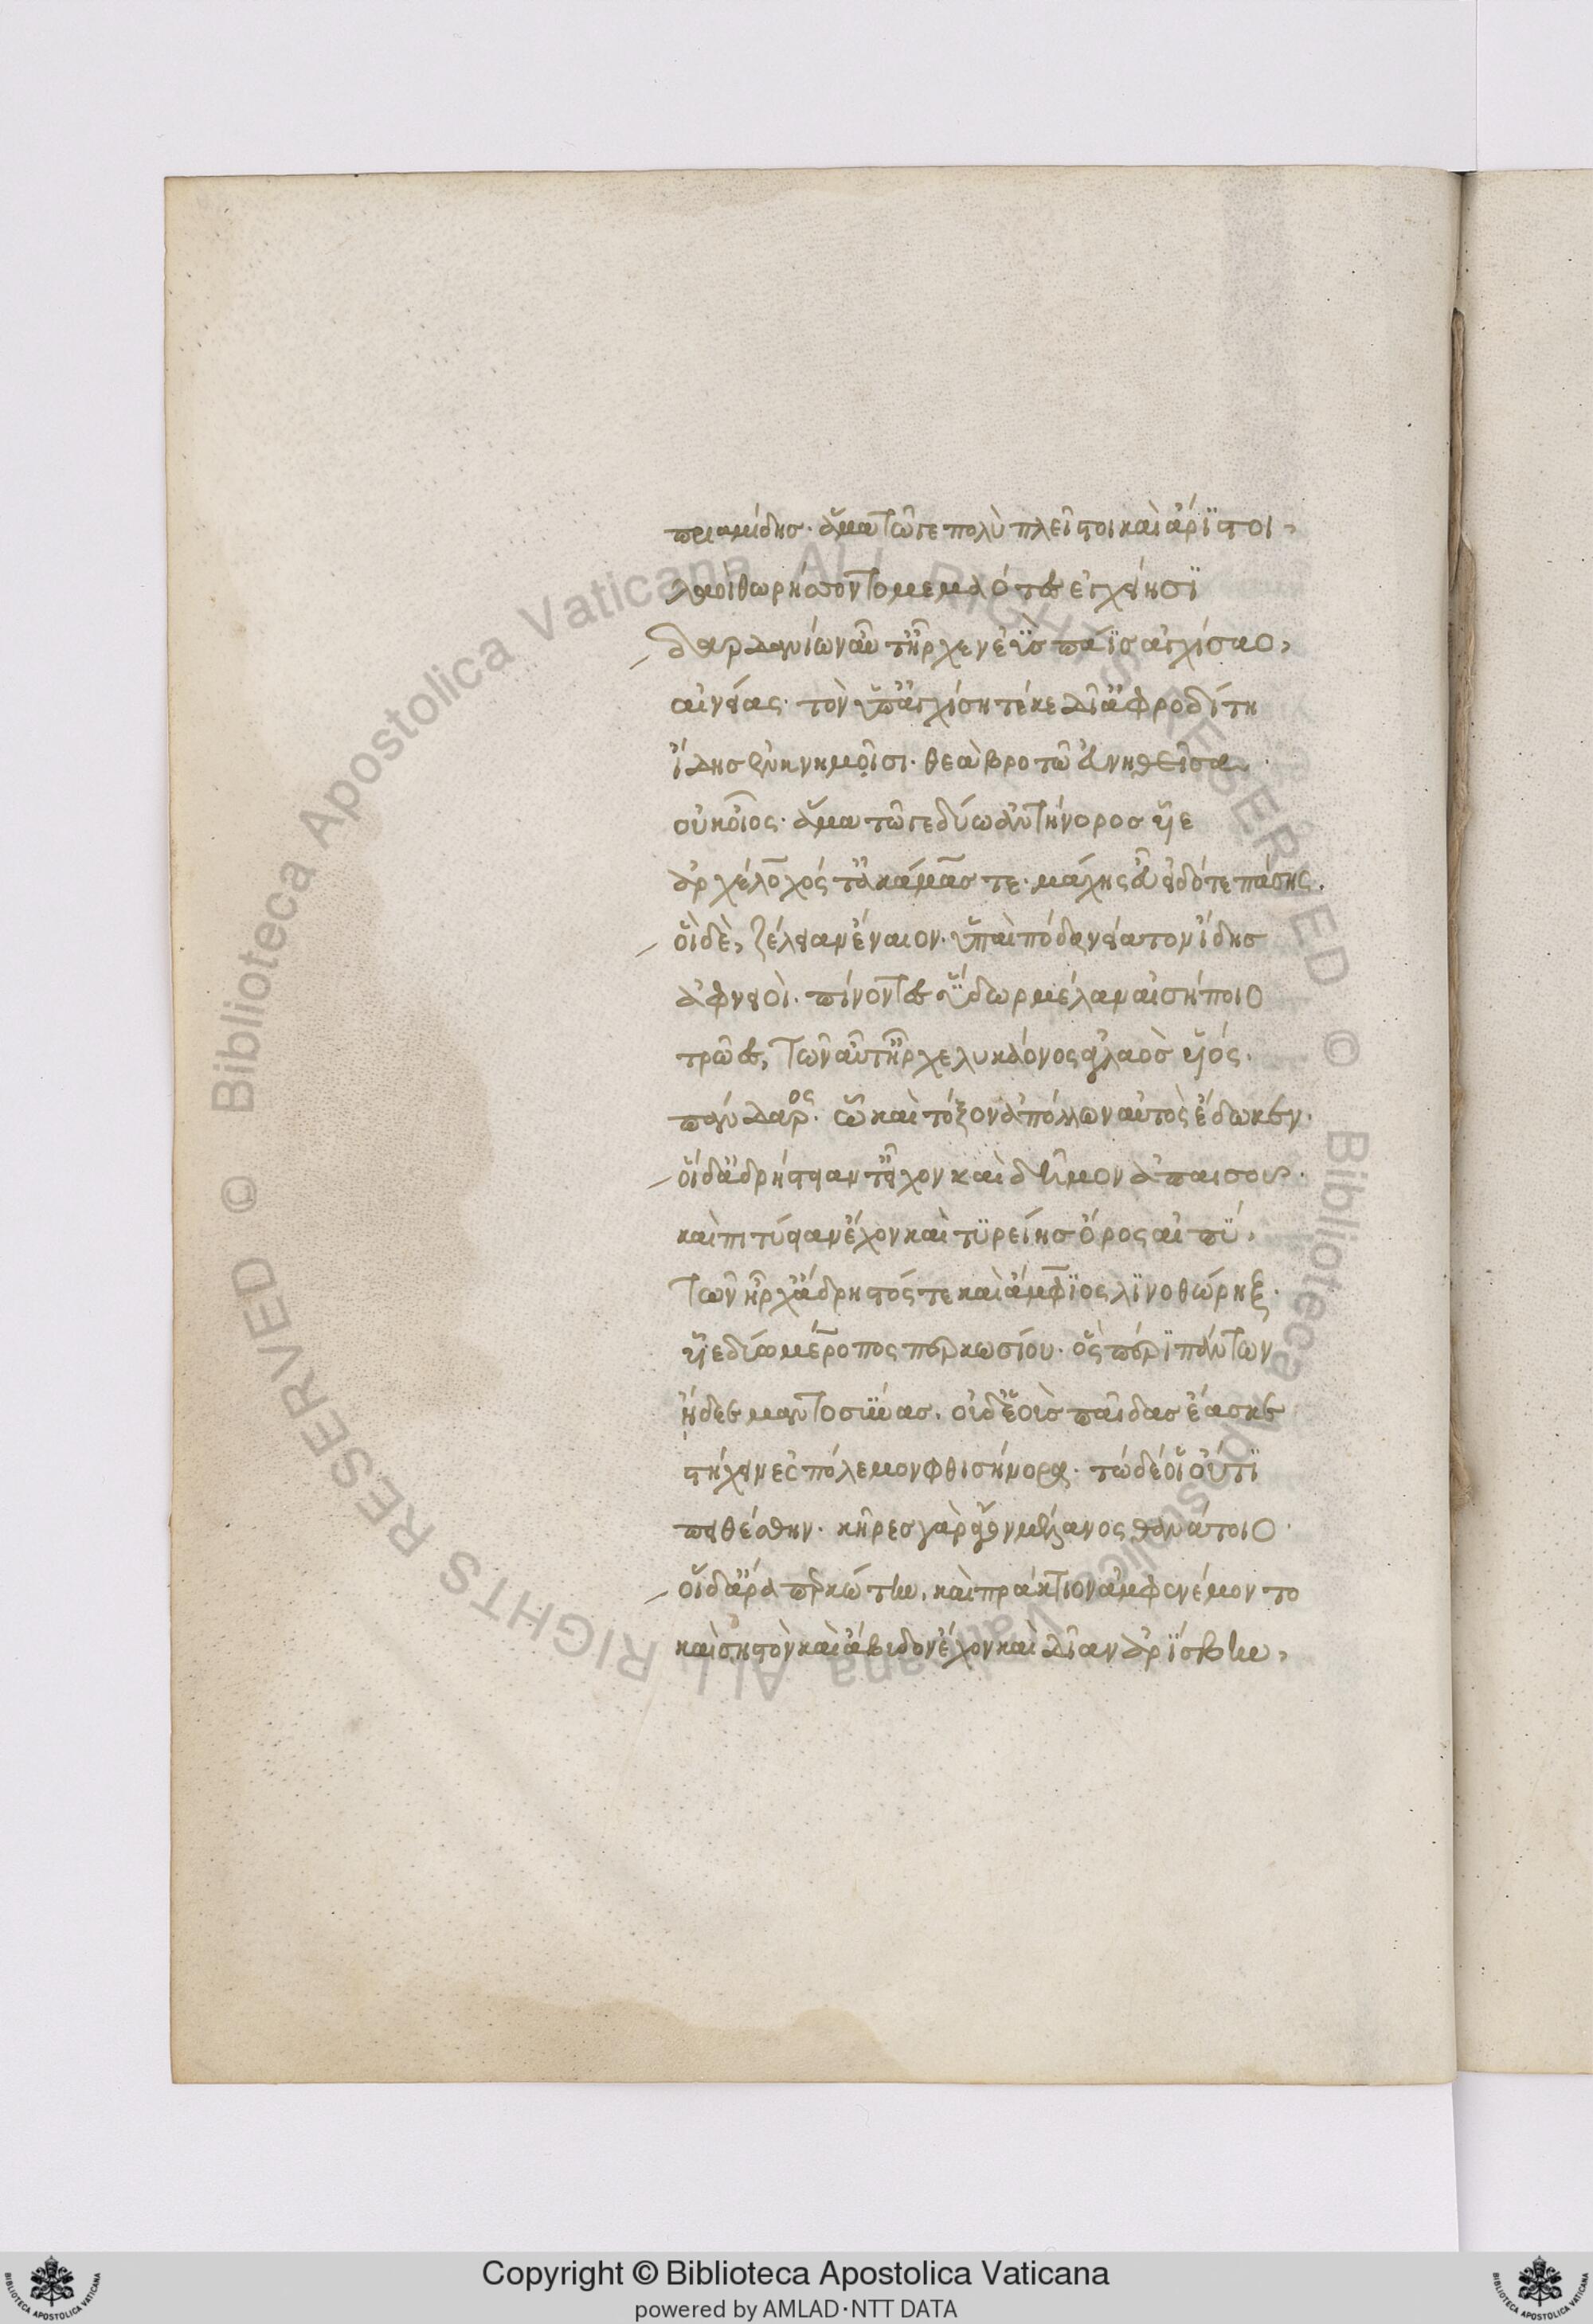 πριαμίδης· ἅμα τῶγε πολὺ πλεῖστοι καὶ ἄριστοι,
λαοὶ θωρήσσοντο μεμαότες ἐγχείησι
δαρδανίων αὖτ' ἦρχεν ἐῢς πάϊς ἀγχίσαο,
αἰνείας· τὸν ὑπ' ἀγχίση τέκε δῖ' ἀφροδίτη
ἴδης ἐν κνημοῖσι· θεὰ βροτῶ εὐνηθεῖσα·
οὐκ οἶος· ἅμα τῶγε δύω ἀντήνορος υἷε
ἀρχέλοχός τ' ἀκάμας τε· μάχης εὖ εἰδότε πάσης.
οἳ δὲ, ζέλειαν ἔναιον· ὑπαὶ πόδα νείατον ἴδης
ἀφνειοὶ· πίνοντες ὕδωρ μέλαν αἰσήποιο
τρῶες, τῶν αὖτ' ἦρχε λυκάονος ἀγλαὸς υἱός.
πάνδαρος· ᾧ καὶ τόξον ἀπόλλων αὐτὸς ἔδωκεν·
οἳ δ' ἀδρήστειαν τ' εἶχον καὶ δῆμον ἀπαισοῦ·
καὶ πιτύειαν ἔχον καὶ τηρείης ὄρος αἰπύ,
τῶν ἦρχ' ἄδρηστός τε καὶ ἄμφιος λινοθώρηξ·
υἷε δύω μέροπος περκωσίου· ὃς περὶ πάντων
ᾔδεε μαντοσύνας, οὐδὲ οὓς παῖδας ἔασκε
στείχειν ἐς πόλεμον φθισήνορα· τὼ δέ οἱ οὔτι
πειθέσθην· κῆρες γὰρ ἄγον μέλανος θανάτοιο·
οἳ δ' ἄρα περκώτην, καὶ πράκτιον ἀμφενέμοντο
καὶ σηστὸν καὶ ἄβυδον ἔχον καὶ δῖαν ἀρίσβην,
Copyright © Biblioteca Apostolica Vaticana
powered by AMLAD·NTT DATA